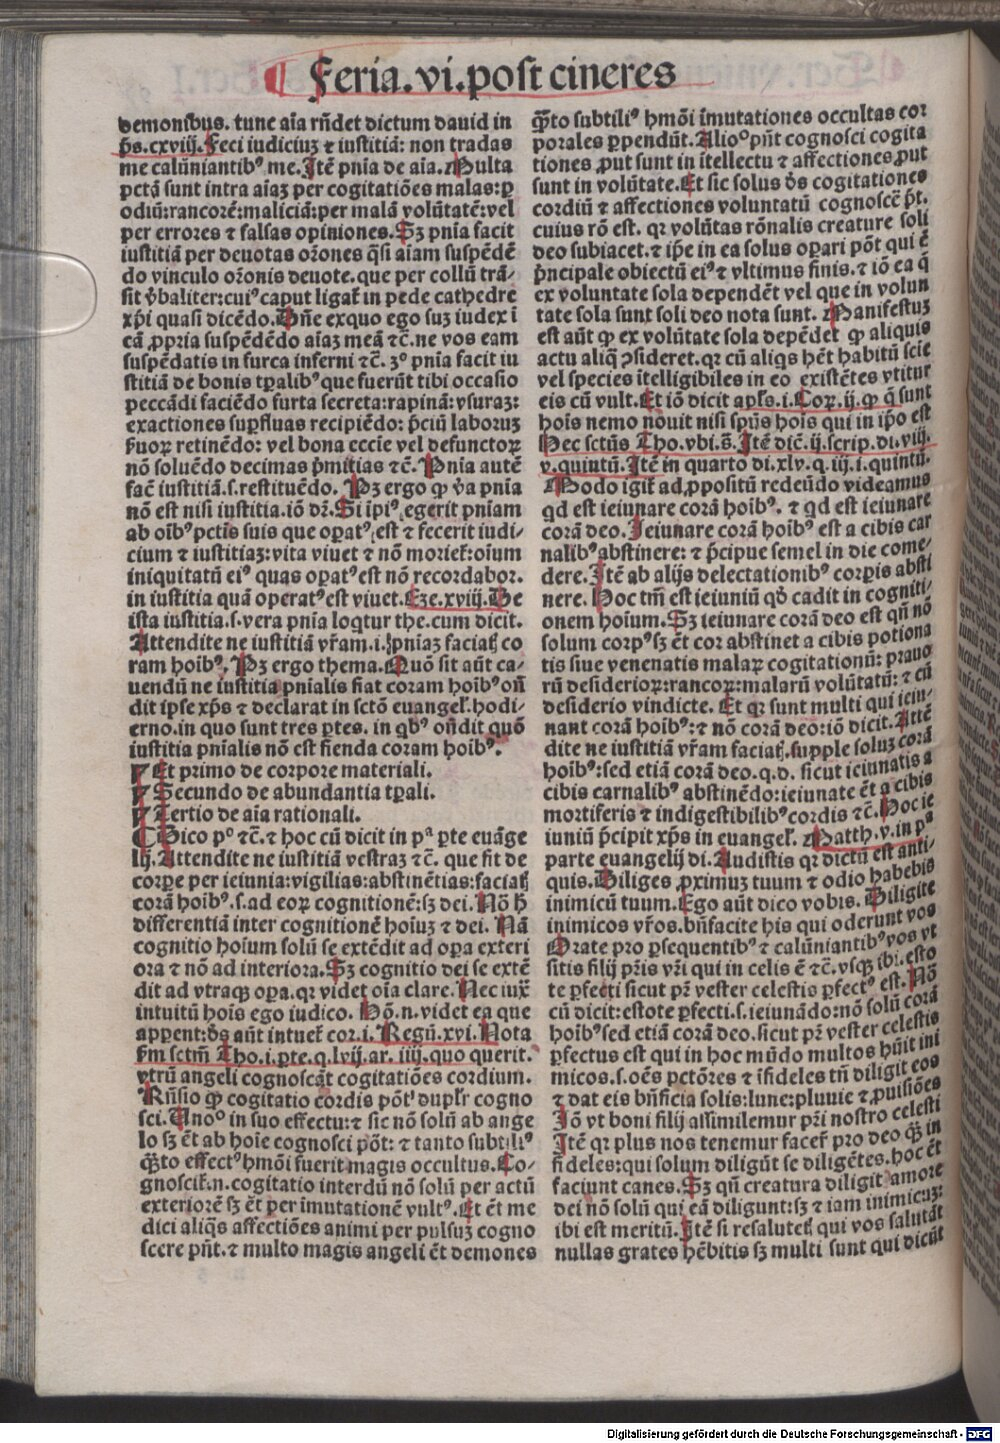 Feria.vi.post cineres
demonibus. tunc aīa rn̄det dictum dauid in
p̄s.cxviij. Feci iudiciuꝫ ⁊ iustitiā: non tradas
me calūniantibꝰ me. Itē pnīa de aīa. Multa
pctā sunt intra aīaꝫ per cogitatiōes malas: ꝑ
odiū: rancorē: maliciā: per malā volūtatē: vel
per errores ⁊ falsas opiniones. Sꝫ pnīa facit
iustitiā per deuotas orōnes q̄si aīam suspēdē
do vinculo orōnis deuote. que per collū trā⸗
sit v̄baliter: cuiꝰ caput ligat̄ in pede cathedre
xp̄i quasi dicēdo. Dn̄e exquo ego suꝫ iudex ī
eā ꝓpria suspēdēdo aīaꝫ meā ⁊c̄. ne vos eam
suspēdatis in furca inferni ⁊c̄. 3º pnīa facit iu
stitiā de bonis tp̄alibꝰ que fuerūt tibi occasio
peccādi faciēdo furta secreta: rapinā: vsuraꝫ:
exactiones suꝑfluas recipiēdo: p̄ciū laboruꝫ
ẜuoꝝ retinēdo: vel bona eccīe vel defunctoꝝ
nō soluēdo decimas p̄mitias ⁊c̄. Pnīa autē
facē iustitiā.s. restituēdo. Pꝫ ergo ꝙ v̄a pnīa
nō est nisi iustitia. iō dꝛ̄. Si īpiꝰ egerit pnīam
ab oībꝰ pctis suis que oꝑatꝰ est ⁊ fecerit iudi⸗
cium ⁊ iustitiaꝫ: vita viuet ⁊ nō moriet̄: oīum
iniquitatū eiꝰ quas oꝑatꝰ est nō recordabor.
in iustitia quā operatꝰ est viuet. Eze.xviij. De
ista iustitia.s. vera pnīa loqtur the. cum dicit.
Attendite ne iustitiā vr̄am.i. pniaꝫ faciatꝭ co
ram hoībꝰ. Pꝫ ergo thema. Quō sit aūt ca⸗
uendū ne iustitia pnīalis fiat coram hoībꝰ on̄
dit ipse xp̄s ⁊ declarat in sctō euangel̄. hodi⸗
erno. in quo sunt tres ꝑtes. in qbꝰ on̄dit quō
iustitia pnīalis nō est fienda coram hoībꝰ.
Et primo de corpore materiali.
Secundo de abundantia tp̄ali.
Tertio de aīa rationali.
Dico pº ⁊c̄. ⁊ hoc cū dicit in pª ꝑte euāge
lij. Attendite ne iustitiā vestraꝫ ⁊c̄. que fit de
corꝑe per ieiunia: vigilias: abstinētias: faciatꝭ
corā hoībꝰ.s. ad eoꝝ cognitionē: sꝫ dei. Nō h̄
differentiā inter cognitionē hoīuꝫ ⁊ dei. Nā
cognitio hoīum solū se extēdit ad oꝑa exteri
ora ⁊ nō ad interiora. Sꝫ cognitio dei se extē
dit ad vtraqꝫ oꝑa. qꝛ videt oīa clare. Nec iux̄
intuitū hoīs ego iudico. Hō.n. videt ea que
apparent: ds̄ aūt intuet̄ cor.i. Regū.xvi. Nota
ẜm sctm̄ Tho.i.ꝑte.q.lvij.ar.iiij. quo querit.
vtrū angeli cognoscāt cogitatiōes cordium.
Rn̄sio ꝙ cogitatio cordis pōt dupl̄r cogno
sci. Unoº in suo effectu: ⁊ sic nō solū ab ange
lo sꝫ ēt ab hoīe cognosci pōt: ⁊ tanto subtiliꝰ
q̄ꝫto effectꝰ hmōi fuerit magis occultus. Co⸗
gnoscit̄.n. cogitatio interdū nō solū per actū
exteriorē sꝫ ēt per imutationē vultꝰ. Et ēt me
dici aliqs affectiōes animi per pulsuꝫ cogno
scere pn̄t. ⁊ multo magis angeli ēt demones
q̄ꝫto subtiliꝰ hmōi īmutationes occultas cor
porales ꝑpendūt. Alioº pn̄t cognosci cogita
tiones ꝓut sunt in ītellectu ⁊ affectiones ꝓut
sunt in volūtate. Et sic solus ds̄ cogitationes
cordiū ⁊ affectiones voluntatū cognoscē p̄t.
cuius rō est. qꝛ volūtas rōnalis creature soli
deo subiacet. ⁊ ip̄e in ea solus oꝑari pōt qui ē
p̄ncipale obiectū eiꝰ ⁊ vltimus finis. ⁊ iō ea q̄
ex voluntate sola dependēt vel que in volun
tate sola sunt soli deo nota sunt. Manifestuꝫ
est aūt ꝙ ex volūtate sola depēdet ꝙ aliquis
actu aliq̄ ↄsideret. qꝛ cū aliqs hēt habitū sciē
vel species ītelligibiles in eo existētes vtitur
eis cū vult. Et iō dicit apl̄s.i.Coꝝ.ij. ꝙ q̄ sunt
hoīs nemo nouit nisi spūs hoīs qui in ip̄o est
Hec sctūs Tho.vbi.s̄. Itē dic̄.ij.scrip.di.viij.
v. quintū. Itē in quarto di.xlv.q.iij.i. quintū.
Modo igit̄ ad ꝓpositū redeūdo videamus
qd est ieiunare corā hoībꝰ. ⁊ qd est ieiunare
corā deo. Ieiunare corā hoībꝰ est a cibis car
nalibꝰ abstinere: ⁊ p̄cipue semel in die come⸗
dere. Itē ab alijs delectationibꝰ corꝑis absti
nere. Hoc tm̄ est ieiuniū qd̄ cadit in cogniti⸗
onem hoīum. Sꝫ ieiunare corā deo est qn̄ nō
solum corpꝰ sꝫ ēt cor abstinet a cibis potiona
tis siue venenatis malaꝝ cogitationū: prauo
rū desiderioꝝ: rancoꝝ: malarū volūtatū: ⁊ cū
desiderio vindicte. Et qꝛ sunt multi qui ieiu⸗
nant corā hoībꝰ: ⁊ nō corā deo: iō dicit. Attē
dite ne iustitiā vr̄am faciatꝭ. supple soluꝫ corā
hoībꝰ: sed etiā corā deo. q.d. sicut ieiunatis a
cibis carnalibꝰ abstinēdo: ieiunate ēt a cibis
mortiferis ⁊ indigestibilibꝰ cordis ⁊c̄. Hoc ie
iuniū p̄cipit xp̄s in euangel̄. Matth.v. in pª
parte euangelij di. Audistis qꝛ dictū est anti⸗
quis. Diliges ꝓximuꝫ tuum ⁊ odio habebis
inimicū tuum. Ego aūt dico vobis. Diligite
inimicos vr̄os. bn̄facite his qui oderunt vos
Orate pro ꝑsequentibꝰ ⁊ calūniantibꝰ vos vt
sitis filij pr̄is vr̄i qui in celis ē ⁊c̄. vsqꝫ ibi. esto
te ꝑfecti sicut pꝛ̄ vester celestis ꝑfectꝰ est. Nō
cū dicit: estote ꝑfecti.s. ieiunādo: nō solū corā
hoībꝰ sed etiā corā deo. sicut pꝛ̄ vester celestis
ꝑfectus est qui in hoc mūdo multos hūit ini
micos.s. oēs pctōres ⁊ īfideles tn̄ diligit eos
⁊ dat eis bn̄ficia solis: lune: pluuie ⁊ ꝓuisiōes
Iō vt boni filij assimilemur pr̄i nostro celesti
Itē qꝛ plus nos tenemur facer̄ pro deo q̄ꝫ in
fideles: qui solum diligūt se diligētes. hoc ēt
faciunt canes. Sꝫ qn̄ creatura diligit amore
dei nō solū qui eā diligunt: sꝫ ⁊ iam inimicuꝫ:
ibi est meritū. Itē si resalutetꝭ qui vos salutāt
nullas grates hēbitis sꝫ multi sunt qui dicūt
Digitalisierung gefördert durch die Deutsche Forschungsgemeinschaft - DFG